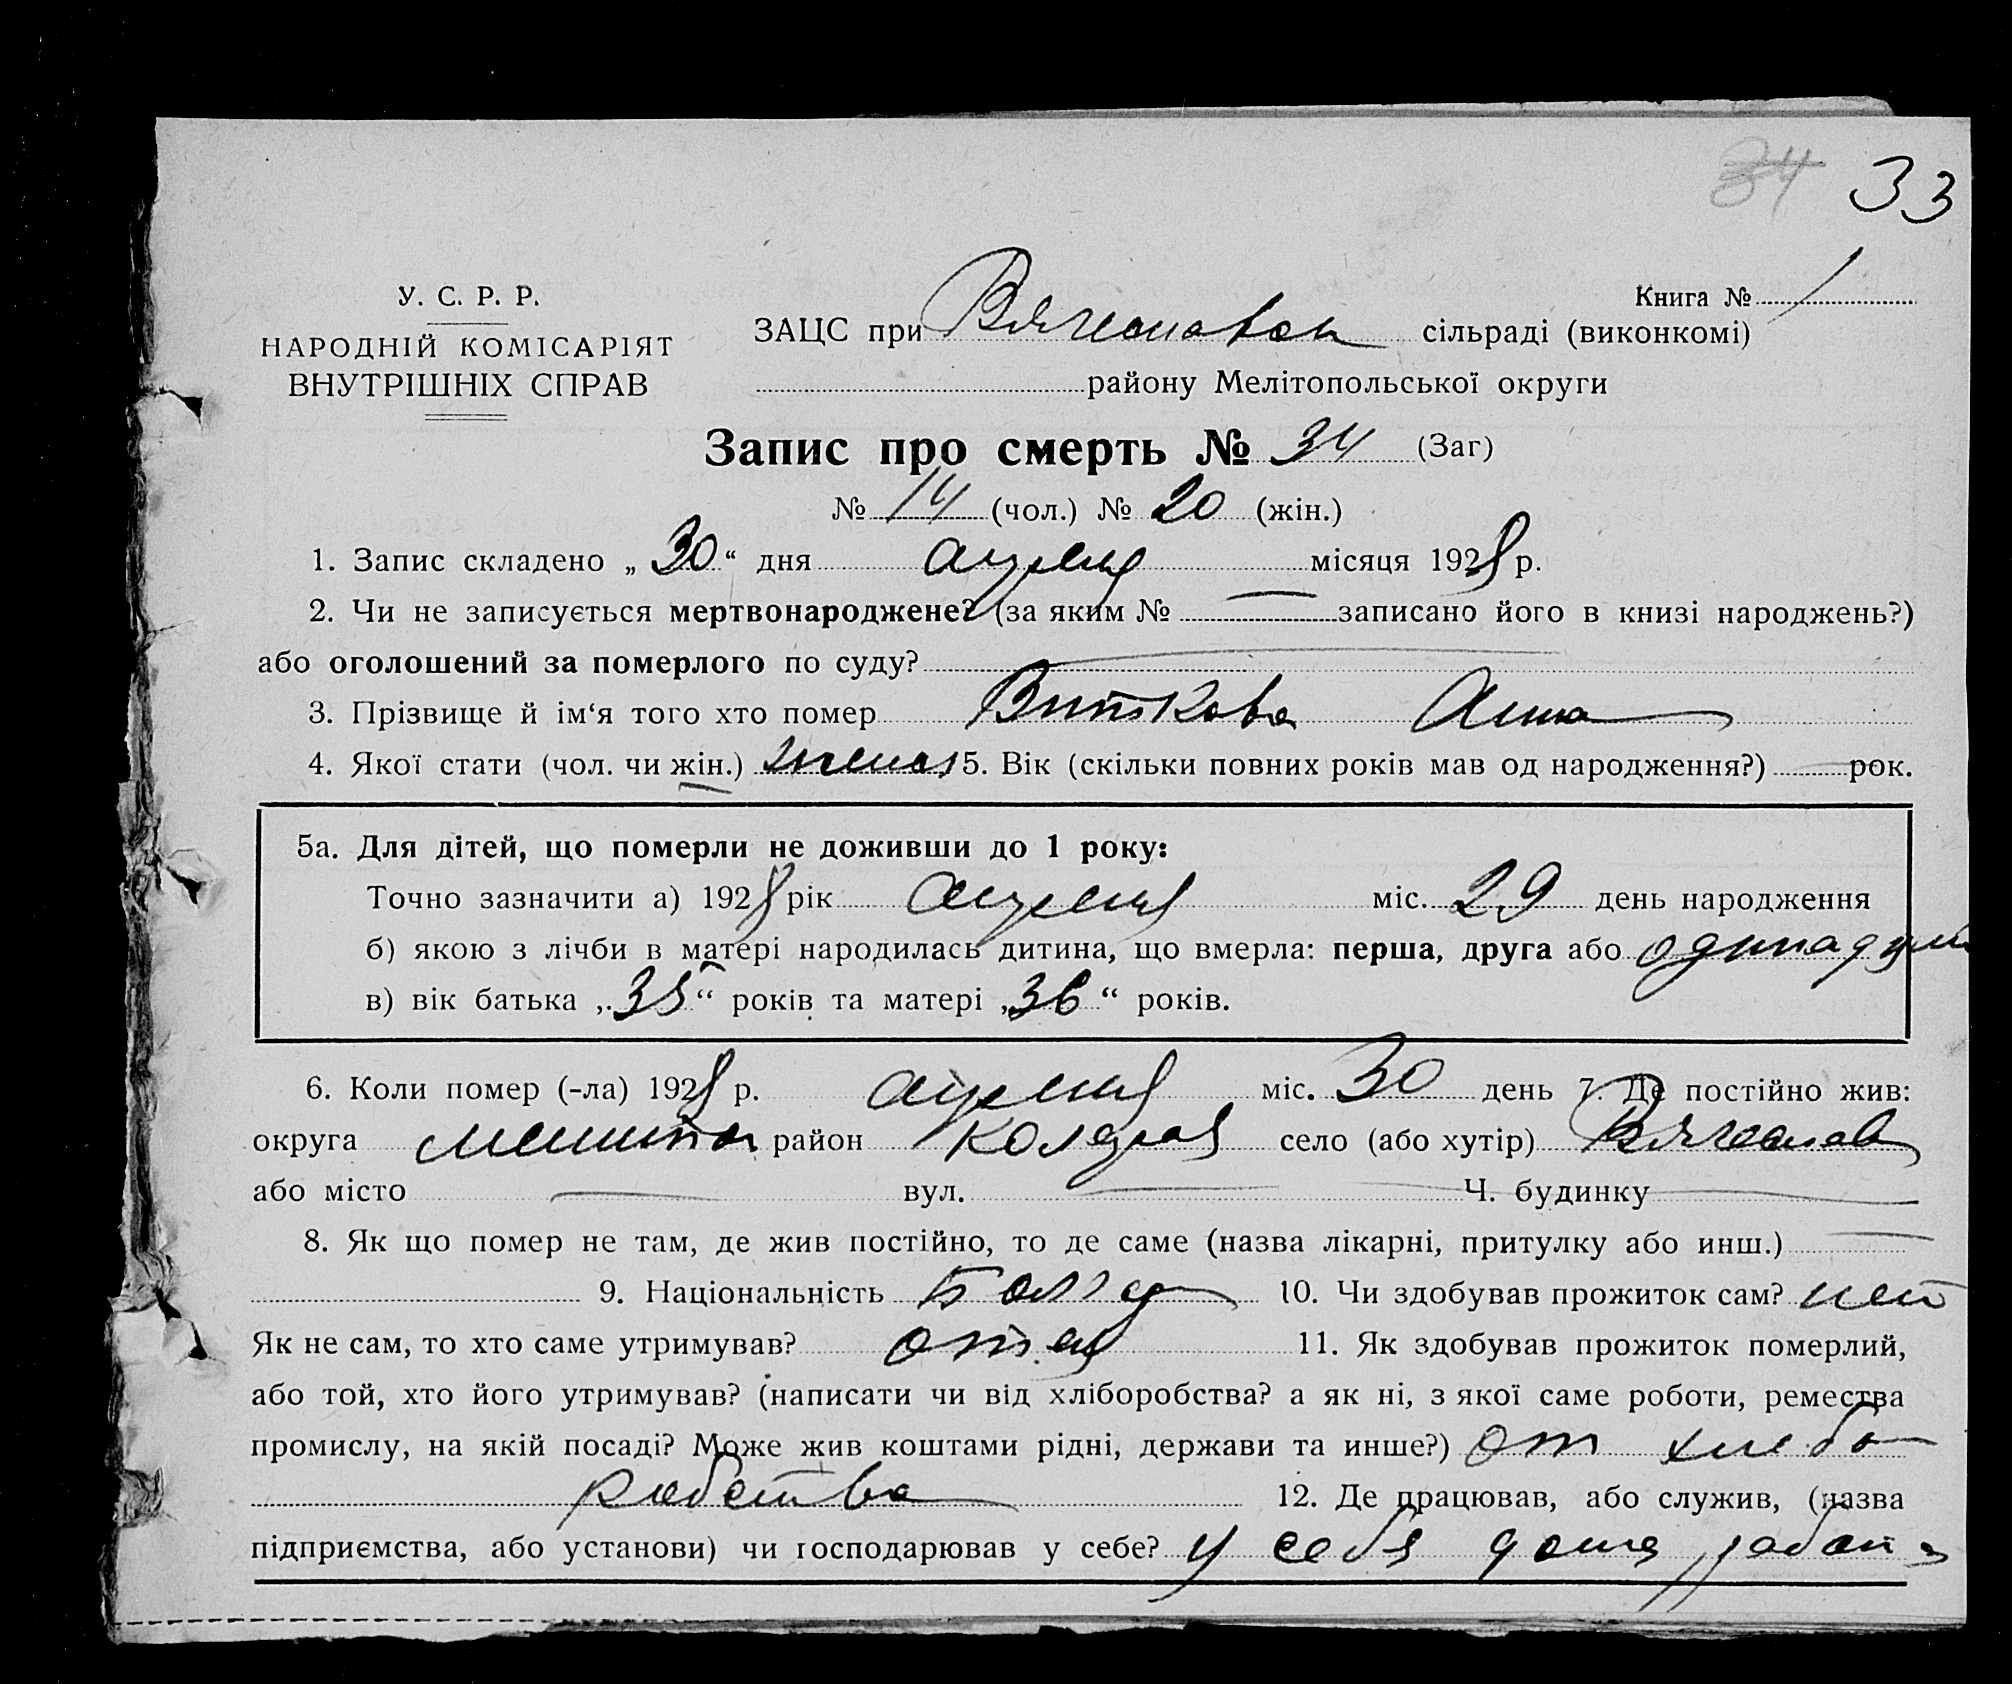 34 33
У. С. Р. Р.
НАРОДНІЙ КОМІСАРІЯТ
ВНУТРІШНІХ СПРАВ
Книга № 1
ЗАЦС при Вячеславск сільраді (виконкомі)
району Мелітопольської округи
Запис про смерть № 34 (Заг)
№ 14 (чол.) № 20 (жін.)
1. Запис складено „30“ дня апреля місяця 1928 р.
2. Чи не записується мертвонароджене? (за яким № — записано його в книзі народжень?)
або оголошений за померлого по суду? —
3. Прізвище й ім‘я того хто помер Виткова Анна
4. Якої стати (чол. чи жін.) женск 5. Вік (скільки повних років мав од народження?) — рок.
5а. Для дітей, що померли не доживши до 1 року:
Точно зазначити а) 1928 рік апреля міс. 29 день народження
б) якою з лічби в матері народилась дитина, що вмерла: перша, друга або
в) вік батька „35“ років та матері „36“ років.
6. Коли помер (-ла) 1928 р. апреля міс. 30 день 7. Де постійно жив:
округа Мелитоп район село (або хутір) Вячеслав
або місто — вул. — Ч. будинку —
8. Як що помер не там, де жив постійно, то де саме (назва лікарні, притулку або инш.) —
9. Національність Болгар 10. Чи здобував прожиток сам? нет
Як не сам, то хто саме утримував? отец 11. Як здобував прожиток померлий,
або той, хто його утримував? (написати чи від хліборобства? а як ні, з якої саме роботи, ремества
промислу, на якій посаді? Може жив коштами рідні, держави та инше?) от хлебо
робства 12. Де працював, або служив, (назва
підприємства, або установи) чи господарював у себе? у себя дома